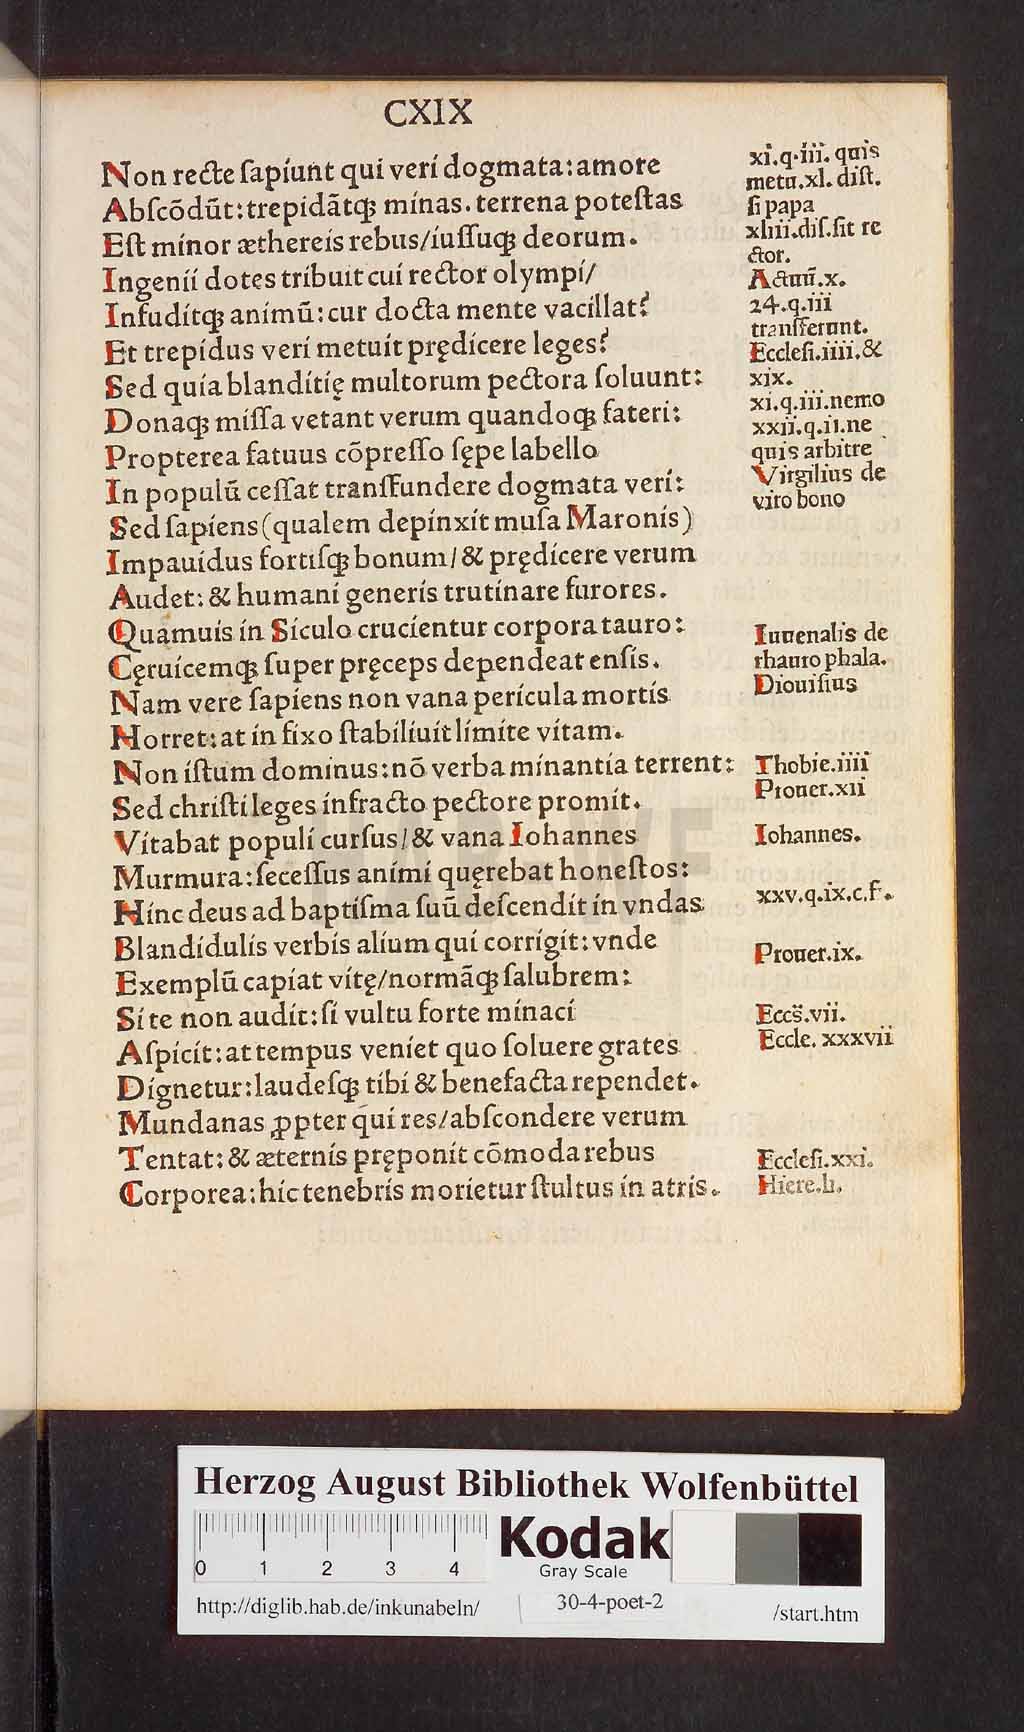 CXIX
Non recte ſapiunt qui veri dogmata: amore
Abſcōdūt: trepidātqꝫ minas. terrena poteſtas
Eſt minor æthereis rebus/iuſſuqꝫ deorum.
Ingenii dotes tribuit cui rector olympi/
Infuditqꝫ animū: cur docta mente vacillat?
Et trepidus veri metuit prędicere leges?
Sed quia blanditię multorum pectora ſoluunt:
Donaqꝫ miſſa vetant verum quandoqꝫ fateri:
Propterea fatuus cōpreſſo ſępe labello
In populū ceſſat tranſfundere dogmata veri:
Sed ſapiens (qualem depinxit muſa Maronis)
Impauidus fortiſqꝫ bonum/& prędicere verum
Audet: & humani generis trutinare furores.
Quamuis in Siculo crucientur corpora tauro:
Cęruicemqꝫ ſuper pręceps dependeat enſis.
Nam vere ſapiens non vana pericula mortis
Horret: at in fixo ſtabiliuit limite vitam.
Non iſtum dominus: nō verba minantia terrent:
Sed chriſti leges infracto pectore promit.
Vitabat populi curſus/& vana Iohannes
Murmura: ſeceſſus animi quęrebat honeſtos:
Hinc deus ad baptiſma ſuū deſcendit in vndas
Blandidulis verbis alium qui corrigit: vnde
Exemplū capiat vitę/normāqꝫ ſalubrem:
Si te non audit: ſi vultu forte minaci
Aſpicit: at tempus veniet quo ſoluere grates
Dignetur: laudeſqꝫ tibi & benefacta rependet.
Mundanas ꝓpter qui res/abſcondere verum
Tentat: & æternis pręponit cōmoda rebus
Corporea: hic tenebris morietur ſtultus in atris.
xi.q.iii. quis
metu.xl. diſt.
ſi papa
xliii.diſ.ſit re
ctor.
Actuū.x.
24.q.iii
tranſferunt.
Eccleſi.iiii.&
xix.
xi.q.iii.nemo
xxii.q.ii.ne
quis arbitre
Virgilius de
viro bono
Iuuenalis de
thauro phala.
Dioniſius
Thobie.iiii
Prouer.xii
Iohannes.
xxv.q.ix.c.f.
Prouer.ix.
Eccs̄.vii.
Eccle. xxxvii
Eccleſi.xxi.
Hiere.li.
HAB-WF
Herzog August Bibliothek Wolfenbüttel
0 1 2 3 4
Kodak
Gray Scale
http://diglib.hab.de/inkunabeln/
30-4-poet-2
/start.htm